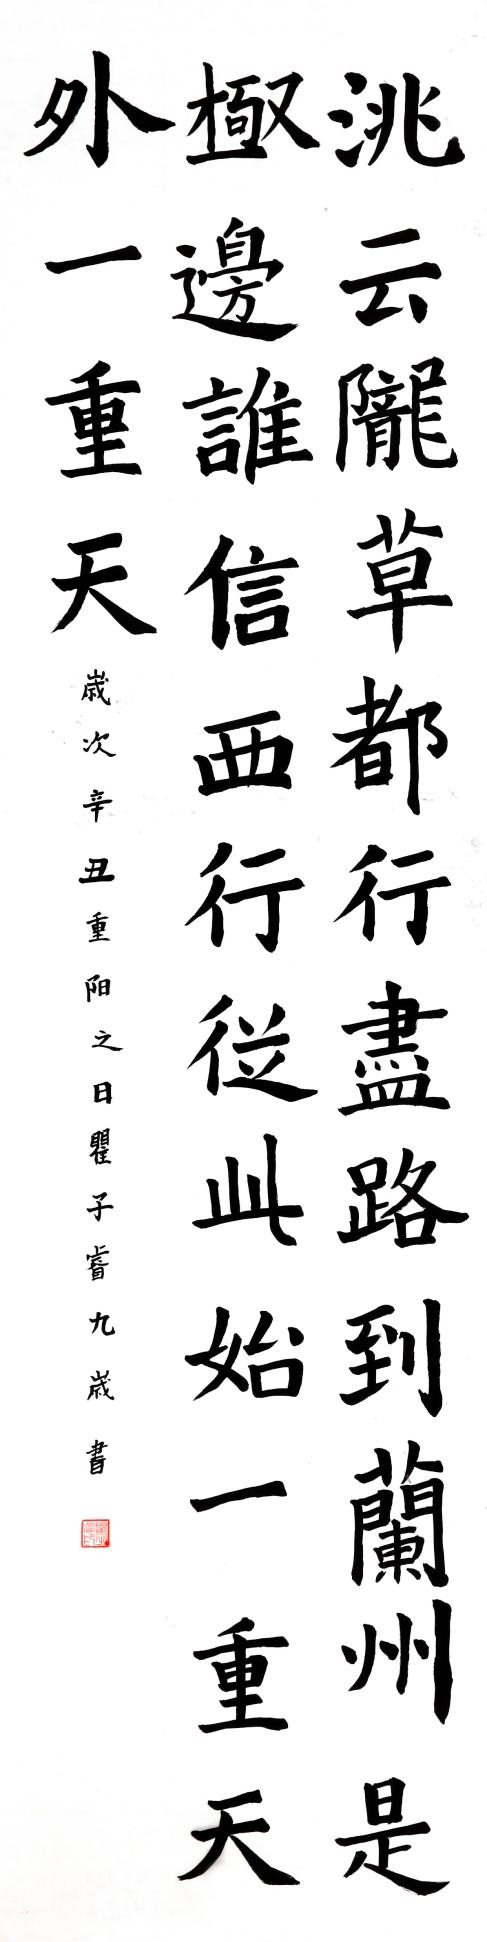 洮云隴草都行盡路到蘭州是
極邊誰信西行從此始一重天
外一重天
歲次辛丑重阳之日瞿子睿九歲書